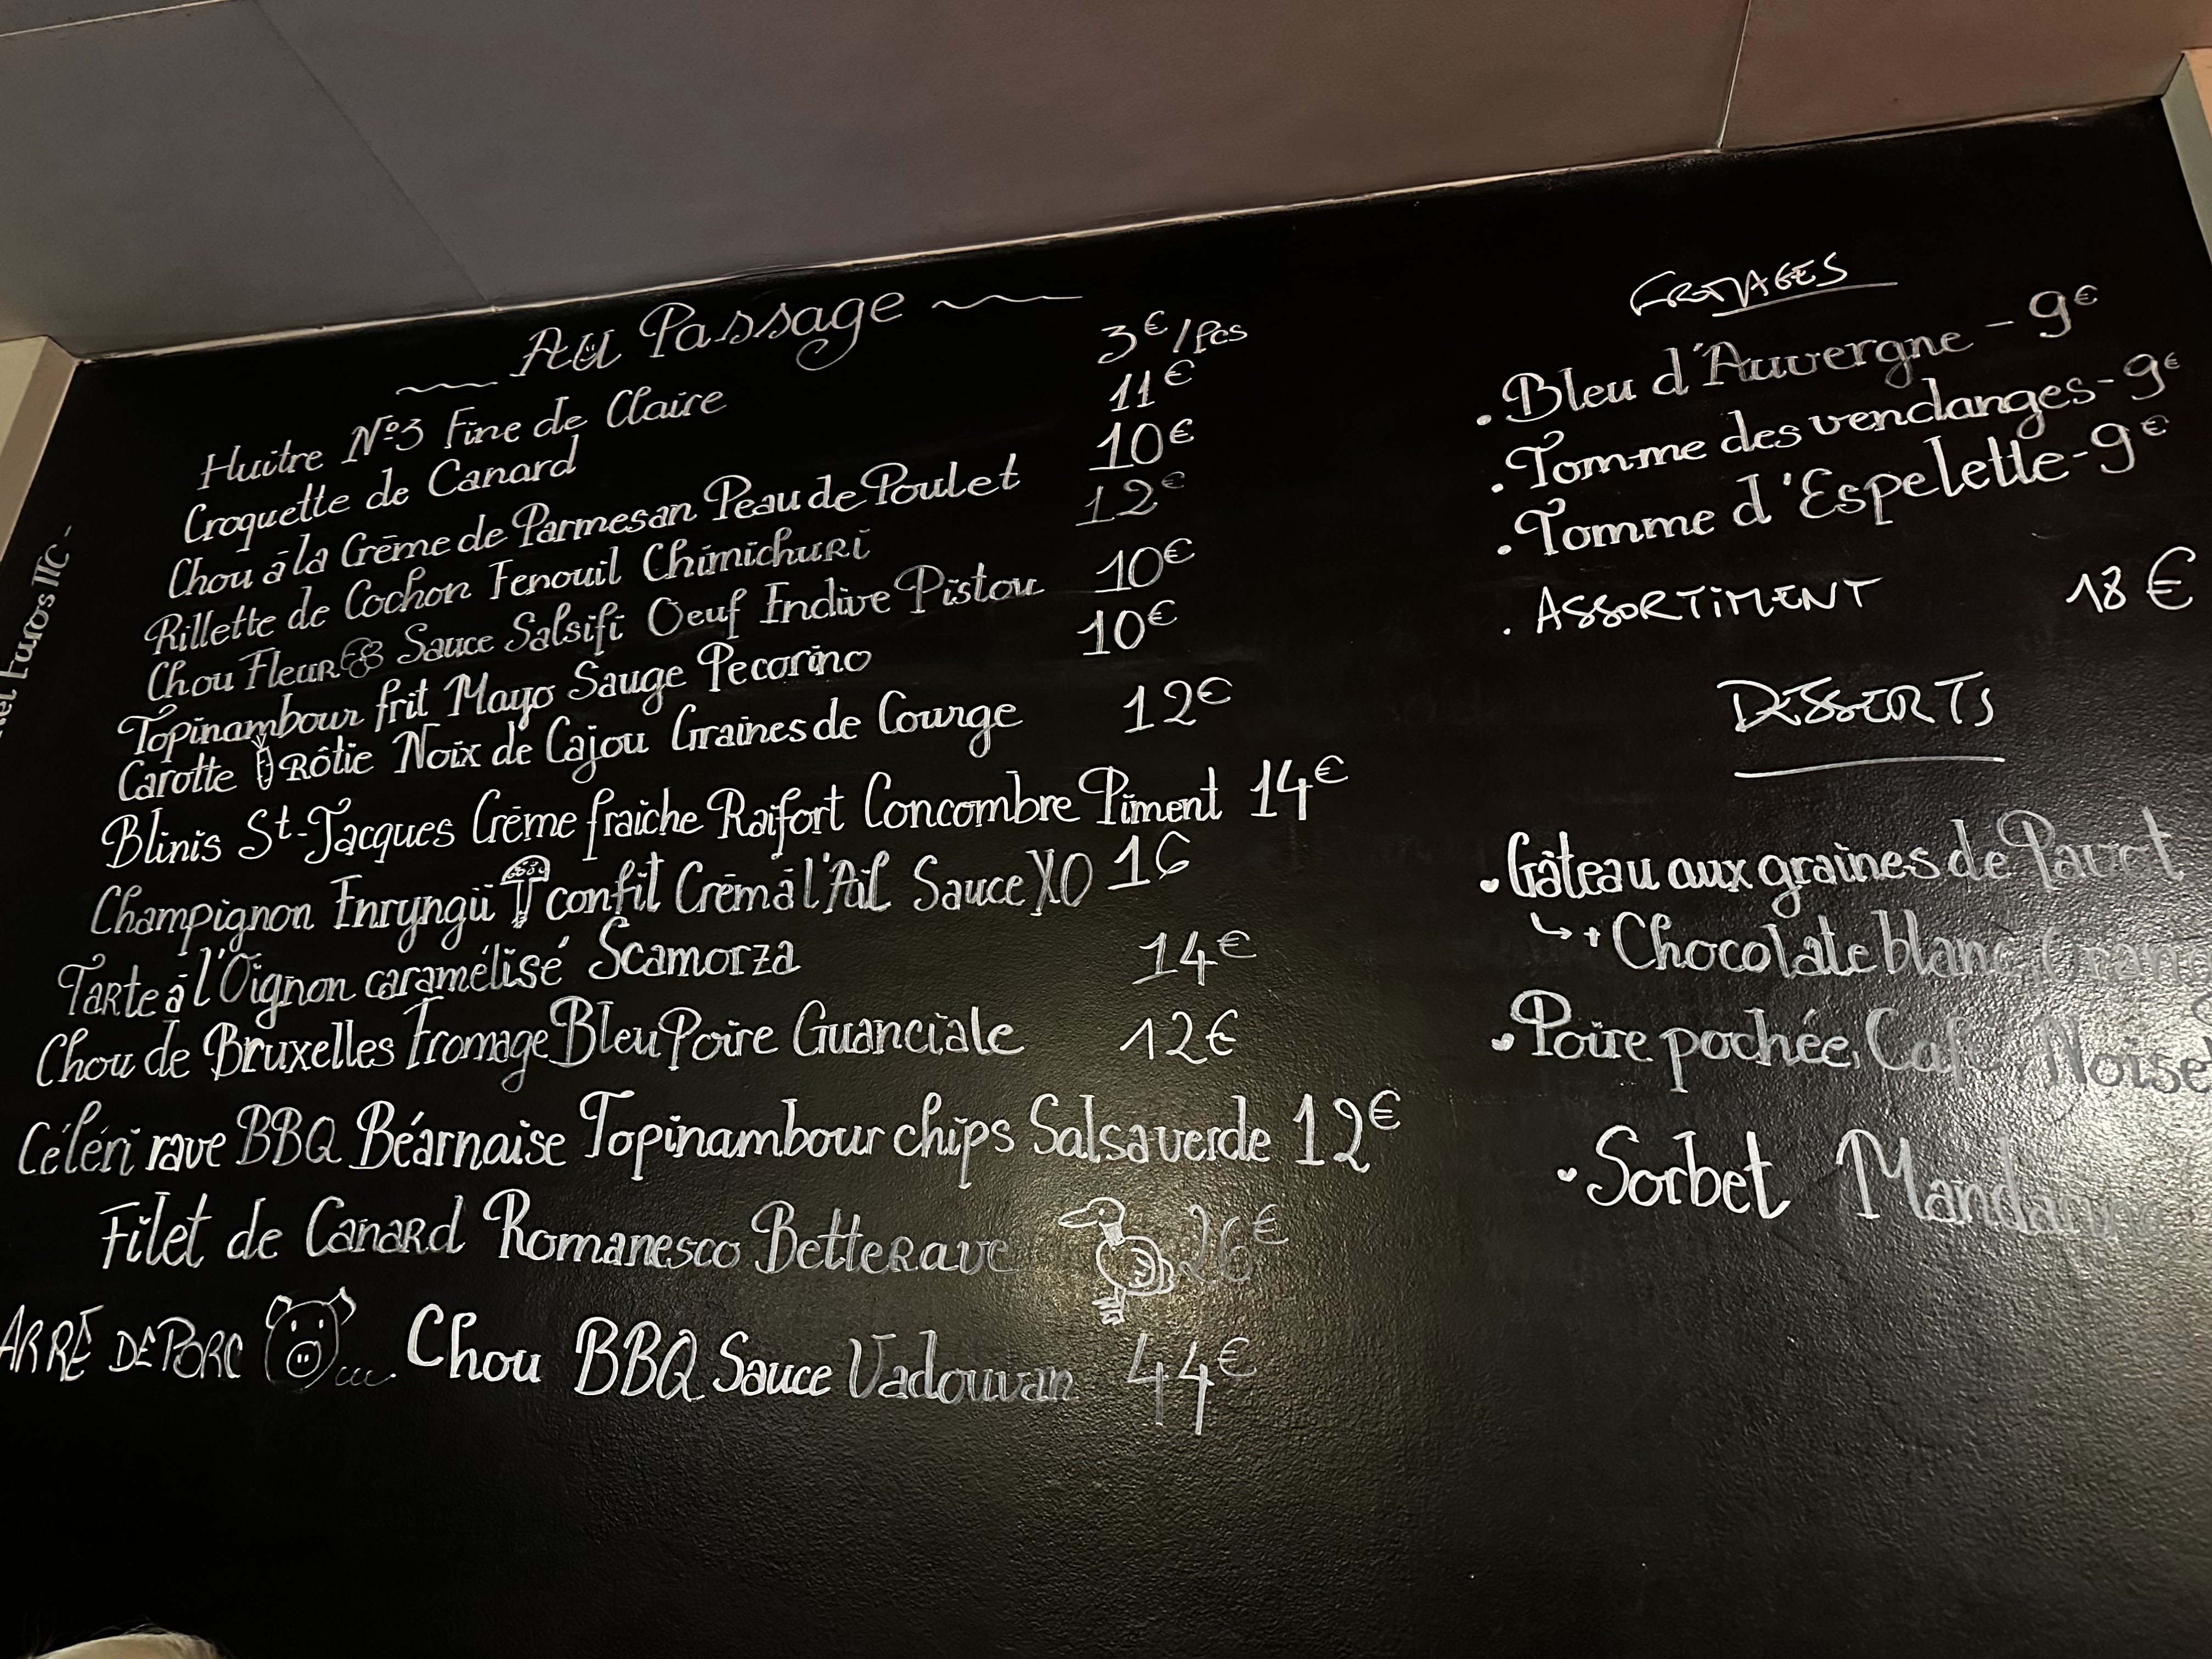 Au Passage
Huitre N°3 Fine de Claire 3€/Pcs
Croquette de Canard 11€
Chou à la Crème de Parmesan Peau de Poulet 10€
Rillette de Cochon Fenouil Chimichuri 12€
Chou Fleur Sauce Salsifi Oeuf Endive Pistou 10€
Topinambour frit Mayo Sauge Pecorino 10€
Carotte Rôtie Noix de Cajou Graines de Courge 12€
Blinis St-Jacques Crème fraiche Raifort Concombre Piment 14€
Champignon Enryngii confit Crèm à l'Ail Sauce XO 16
Tarte à l'Oignon caramélisé Scamorza 14€
Chou de Bruxelles Fromage Bleu Poire Guanciale 12€
Céléri rave BBQ Béarnaise Topinambour chips Salsa verde 12€
Filet de Canard Romanesco Betterave 26€
ARRÉ DE PORC ... Chou BBQ Sauce Vadouvan 44€
FROMAGES
. Bleu d'Auvergne - 9€
. Tomme des vendanges - 9€
. Tomme d'Espelette - 9€
. ASSORTIMENT 18€
DESSERTS
• Gâteau aux graines de Pavot
↳ + Chocolate blanc,
• Poire pochée, Café,
• Sorbet
Euros TTC -